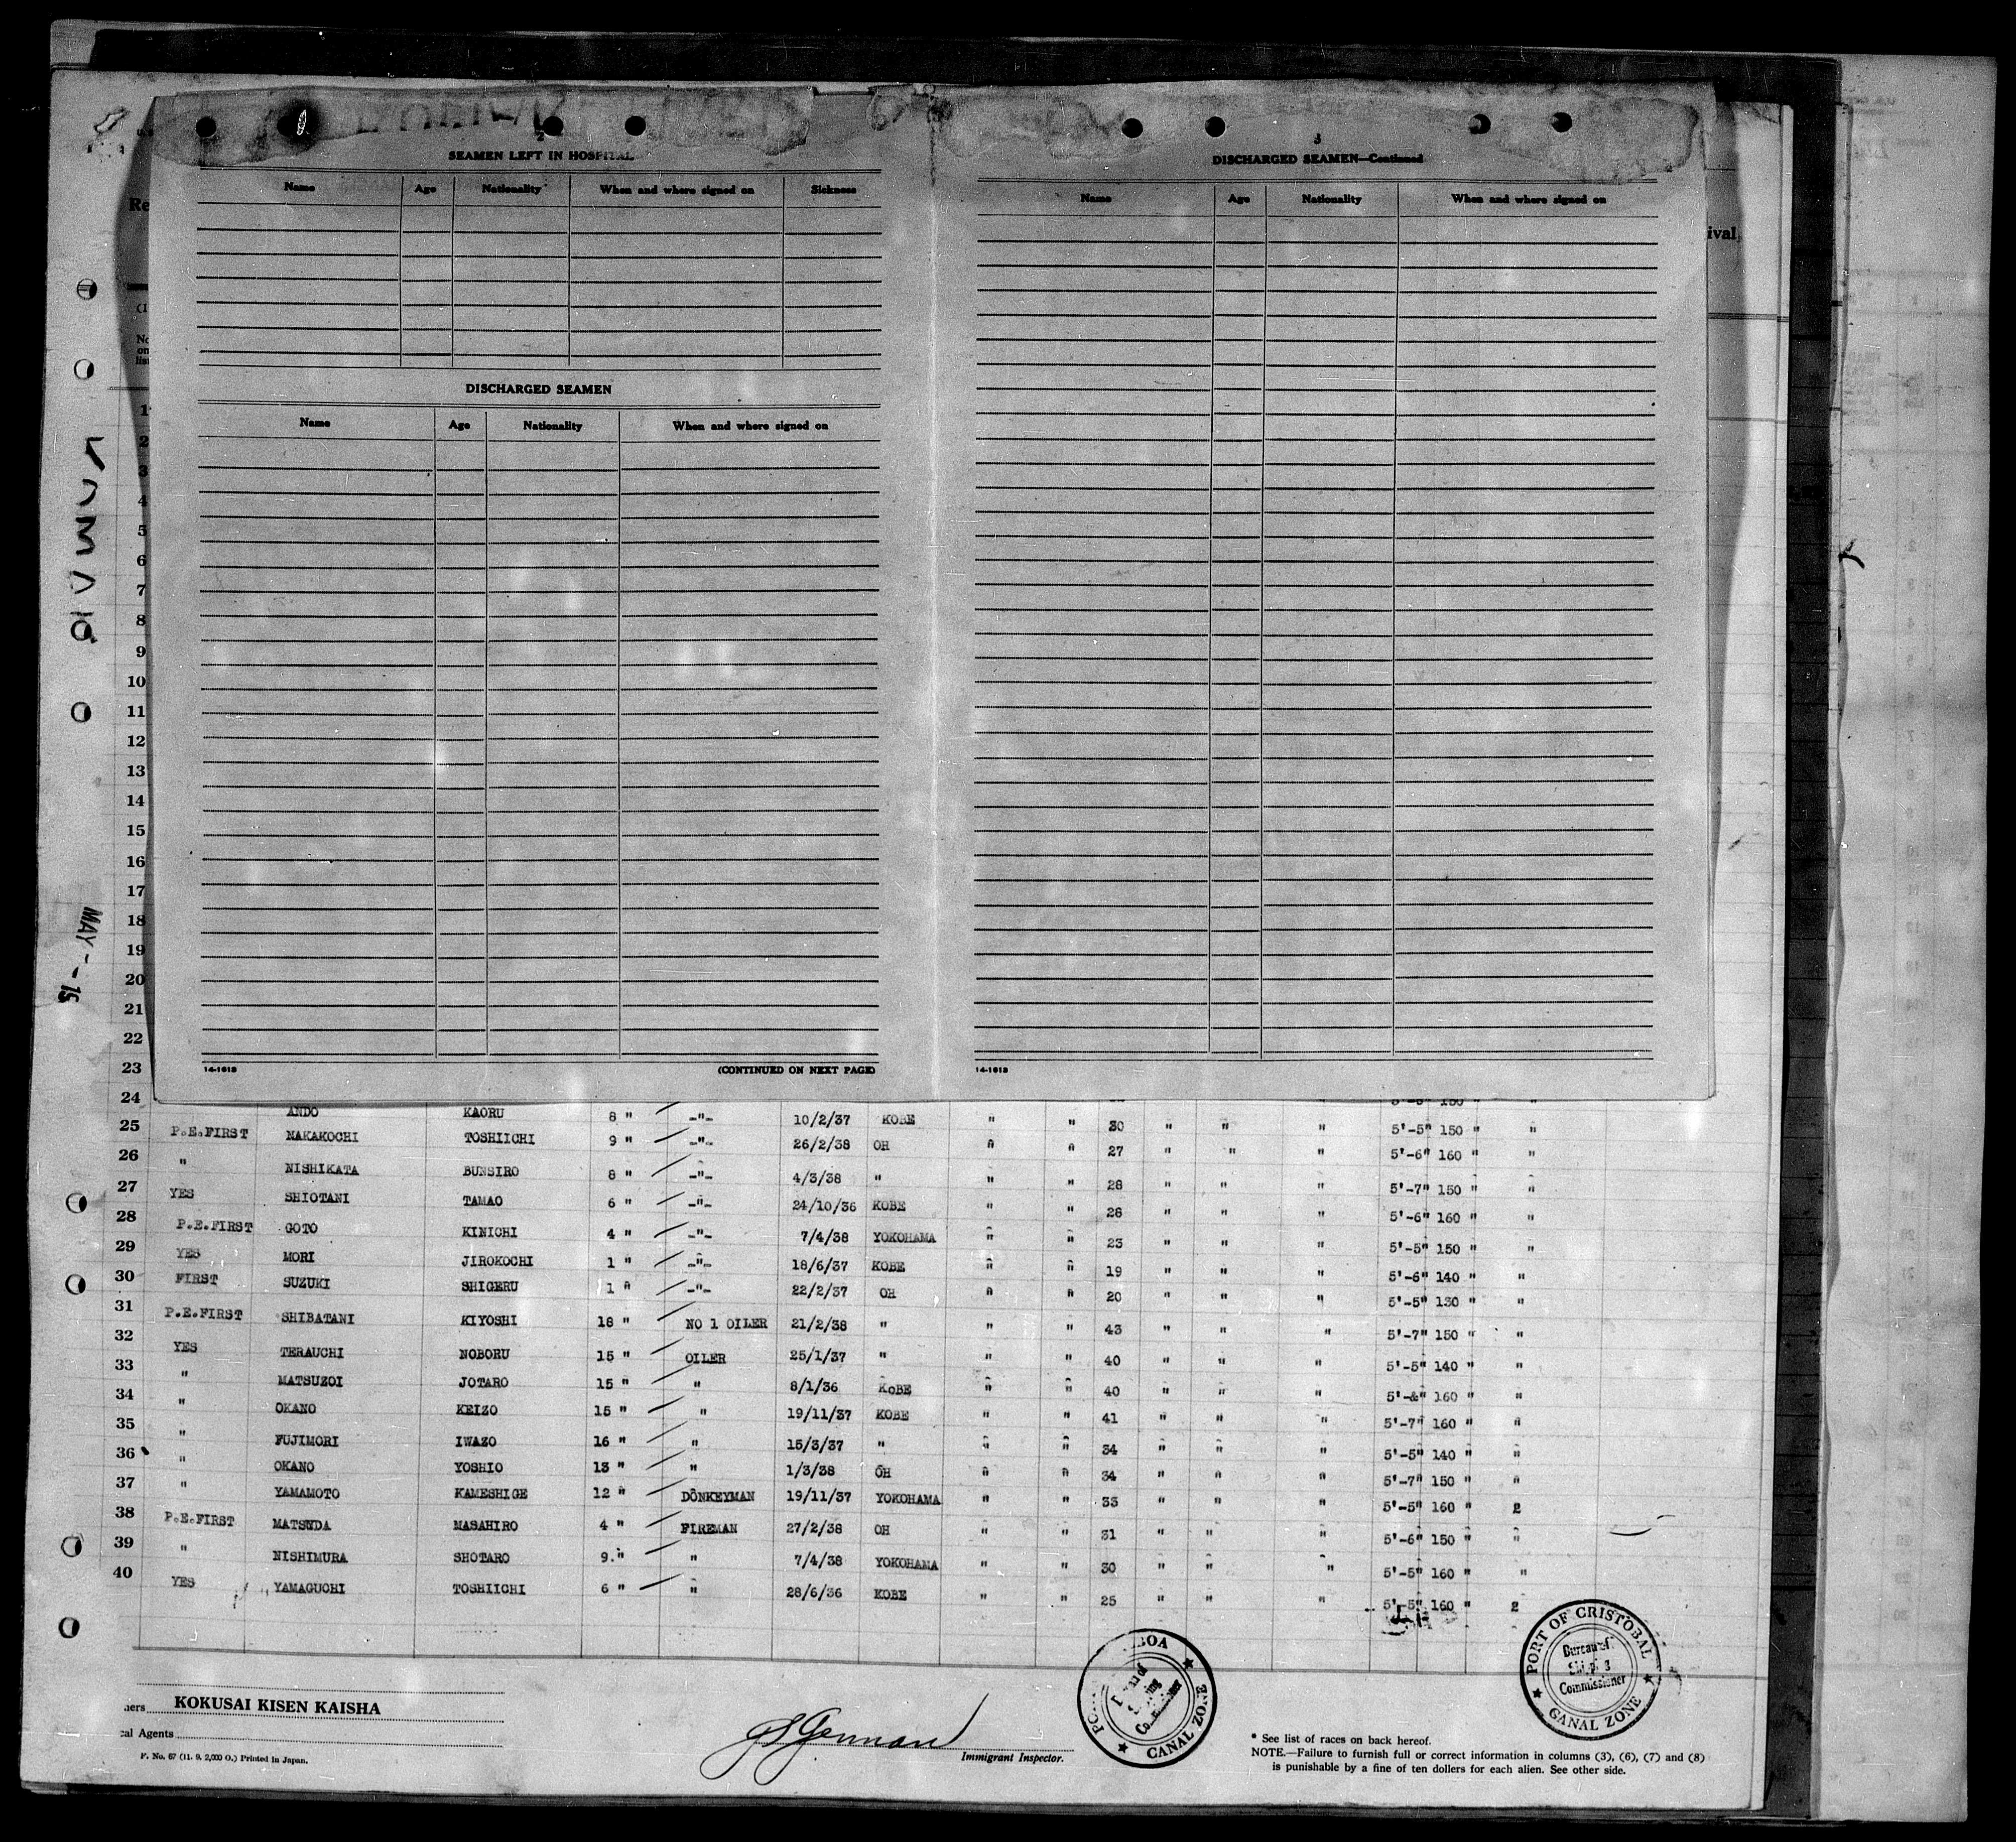 2
SEAMEN LEFT IN HOSPITAL
Name Age Nationality When and where signed on Sickness
DISCHARGED SEAMEN
Name Age Nationality When and where signed on
14-1613 (CONTINUED ON NEXT PAGE)
3
DISCHARGED SEAMEN—Continued
Name Age Nationality When and where signed on
14-1613
Re
ival,
(1
No
on
list
1
2
3
4
5
6
7
8
9
10
11
12
13
14
15
16
17
18
19
20
21
22
23
24
MAY - - 15
ANDO KAORU 8 " -"- 10/2/37 KOBE " " 30 " " " 5'-5" 150 " "
25 P.E.FIRST NAKAKOCHI TOSHIICHI 9 " -"- 26/2/38 OH " " 27 " " " 5'-6" 160 " "
26 " NISHIKATA BUNSIRO 8 " -"- 4/3/38 " " " 28 " " " 5'-7" 150 " "
27 YES SHIOTANI TAMAO 6 " -"- 24/10/36 KOBE " " 28 " " " 5'-6" 160 " "
28 P.E.FIRST GOTO KINICHI 4 " -"- 7/4/38 YOKOHAMA " " 23 " " " 5'-5" 150 " "
29 YES MORI JIROKOCHI 1 " -"- 18/6/37 KOBE " " 19 " " " 5'-6" 140 " "
30 FIRST SUZUKI SHIGERU 1 " -"- 22/2/37 OH " " 20 " " " 5'-5" 130 " "
31 P.E.FIRST SHIBATANI KIYOSHI 18 " NO 1 OILER 21/2/38 " " " 43 " " " 5'-7" 150 " "
32 YES TERAUCHI NOBORU 15 " OILER 25/1/37 " " " 40 " " " 5'-5" 140 " "
33 " MATSUZOI JOTARO 15 " " 8/1/36 KOBE " " 40 " " " 160 " "
34 " OKANO KEIZO 15 " " 19/11/37 KOBE " " 41 " " " 5'-7" 160 " "
35 " FUJIMORI IWAZO 16 " " 15/3/37 " " " 34 " " " 5'-5" 140 " "
36 " OKANO YOSHIO 13 " " 1/3/38 OH " " 34 " " " 5'-7" 150 " "
37 " YAMAMOTO KAMESHIGE 12 " DONKEYMAN 19/11/37 YOKOHAMA " " 33 " " " 5'-5" 160 " 2
38 P.E.FIRST MATSUDA MASAHIRO 4 " FIREMAN 27/2/38 OH " " 31 " " " 5'-6" 150 " "
39 " NISHIMURA SHOTARO 9." " 7/4/38 YOKOHAMA " " 30 " " " 5'-5" 160 " "
40 YES YAMAGUCHI TOSHIICHI 6 " " 28/6/36 KOBE " " 25 " " " 5'-5" 160 " 2
ners KOKUSAI KISEN KAISHA
cal Agents
F. No. 67 (11. 9. 2,000 O.) Printed in Japan.
Immigrant Inspector.
BOA
CANAL ZONE
PORT OF CRISTOBAL
Bureau of
Commissioner
CANAL ZONE
* See list of races on back hereof.
NOTE.—Failure to furnish full or correct information in columns (3), (6), (7) and (8)
is punishable by a fine of ten dollars for each alien. See other side.